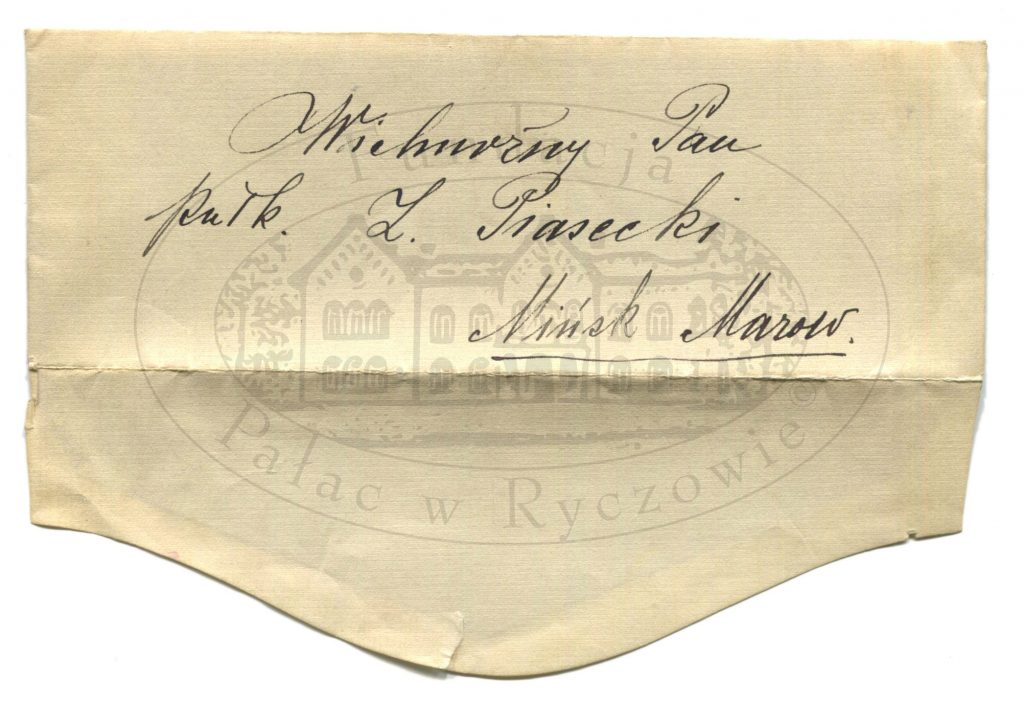 Wielmożny Pan
pułk. Z. Piasecki
Mińsk Mazow.
Fundacja
Pałac w Ryczowie ©